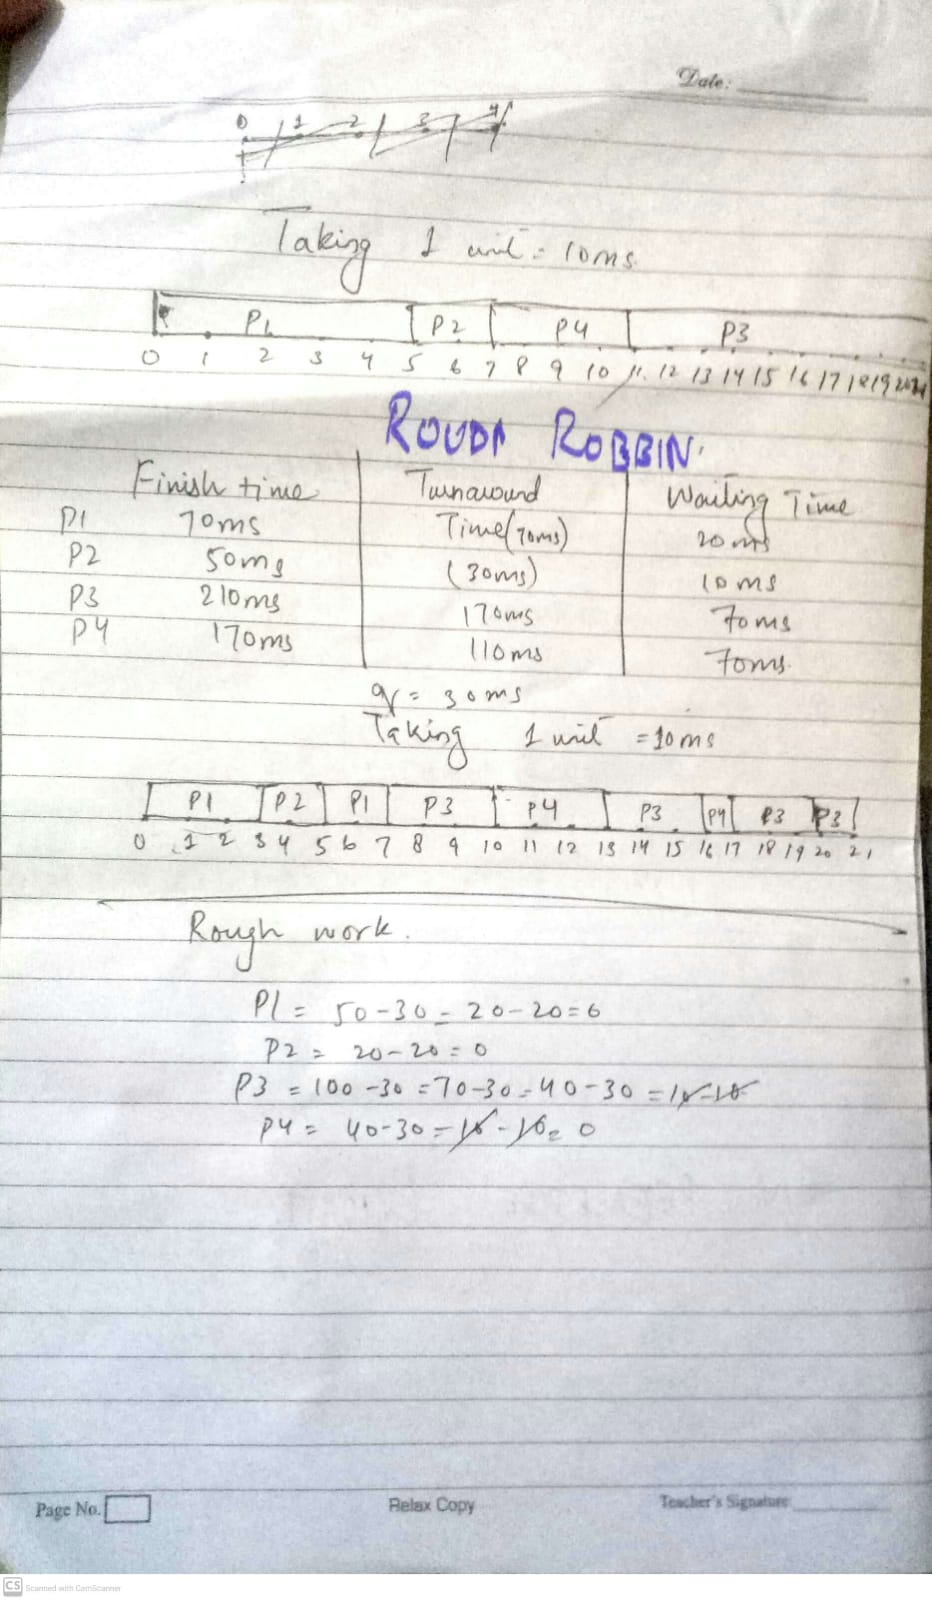 Date:
0 1 2 3 4
Taking 1 unit = 10ms
P1 P2 P4 P3
0 1 2 3 4 5 6 7 8 9 10 11 12 13 14 15 16 17 18 19 20 21
ROUDN ROBBIN.
Finish time Turnaround Waiting Time
P1 70ms Time(70ms) 20 ms
P2 50ms (30ms) 10 ms
P3 210ms 170ms 70ms
P4 170ms 110ms 70ms.
q = 30ms
Taking 1 unit = 10ms
P1 P2 P1 P3 P4 P3 P4 P3 P3
0 1 2 3 4 5 6 7 8 9 10 11 12 13 14 15 16 17 18 19 20 21
Rough work.
P1 = 50-30 = 20-20=0
P2 = 20-20=0
P3 = 100-30=70-30=40-30=10-10
P4 = 40-30=10-10=0
Page No.
Relax Copy
Teacher's Signature
CS Scanned with CamScanner